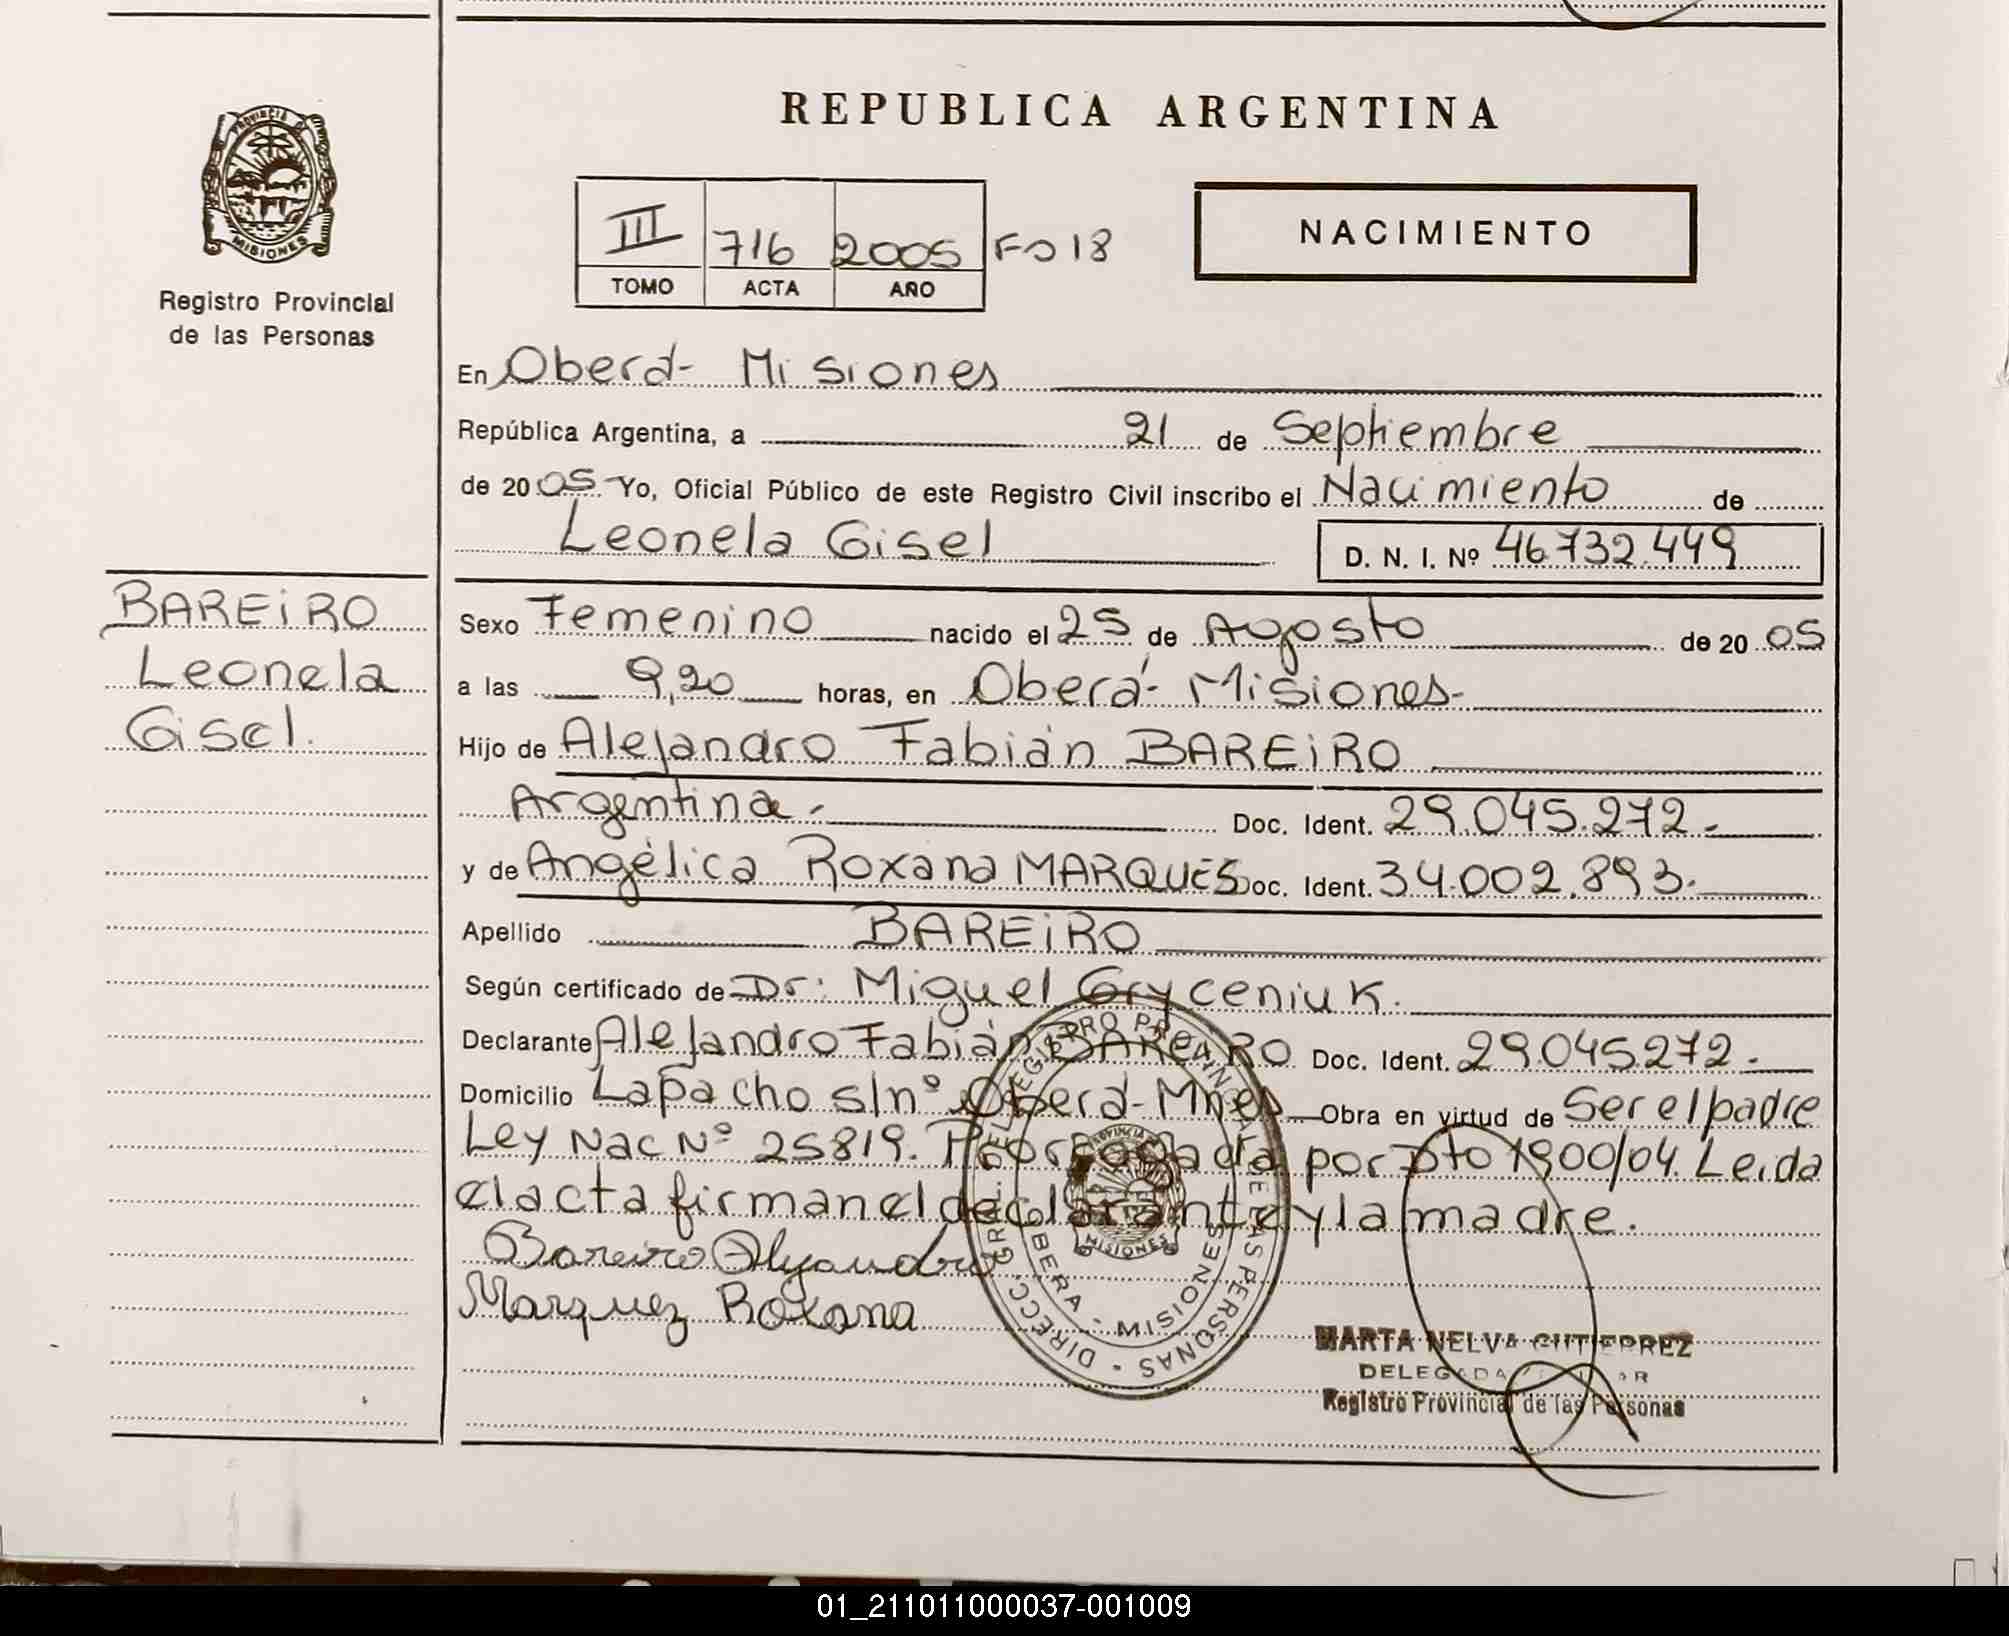 REPUBLICA ARGENTINA
PROVINCIA DE
MISIONES
Registro Provincial
de las Personas
III 716 2005 Fo 18
TOMO ACTA AÑO
NACIMIENTO
En Oberá- Misiones
República Argentina, a 21 de Septiembre
de 2005 Yo, Oficial Público de este Registro Civil inscribo el Nacimiento de
Leonela Gisel D. N. I. Nº 46.732.449
BAREiRO
Leonela
Gisel.
Sexo Femenino nacido el 25 de Agosto de 20 05
a las 9,20 horas, en Oberá- Misiones-
Hijo de Alejandro Fabián BAREiRO
Argentina.- Doc. Ident. 29.045.272.-
y de Angélica Roxana MARQUES Doc. Ident. 34.002.893.
Apellido BAREiRO
Según certificado de Dr: Miguel Gryceniuk.
Declarante Alejandro Fabián BAREiRO Doc. Ident. 29.045.272.-
Domicilio Lapacho s/nº Oberá- Mnes Obra en virtud de Ser el padre
Ley Nac Nº 25819. Prorrogada por Dto 1900/04. Leida
el acta firman el declarante y la madre.
Bareiro Alejandro
Marquez Roxana
DIRECC. GRAL. DEL REGISTRO PROVINCIAL DE LAS PERSONAS
OBERA - MISIONES
PROVINCIA DE
MISIONES
MARTA NELVA GUTIERREZ
DELEGADA
Registro Provincial de las Personas
01_211011000037-001009